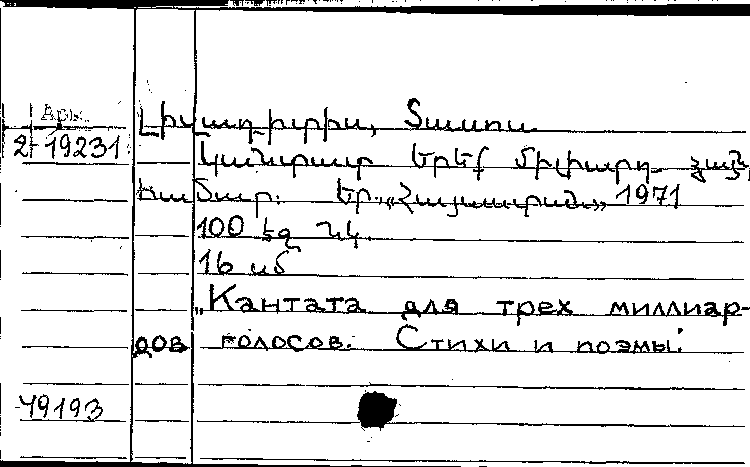 Арм.
2-19231
Լիվադիտիս, Տասոս
Կանտատ երեք միլիարդ ձայնի
համար. Եր. „Հայաստան„ 1971
100 էջ նկ.
16 սմ
„Кантата для трех миллиар-
дов голосов. Стихи и поэмы."
49193